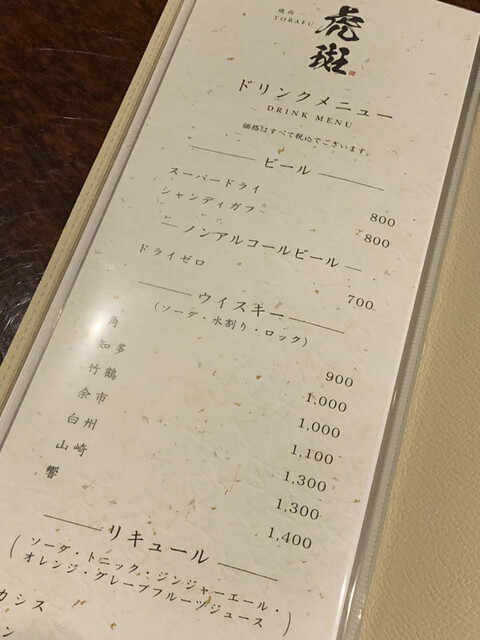 焼肉
TORAFU
虎斑
ドリンクメニュー
DRINK MENU
価格はすべて税込でございます。
ビール
スーパードライ 800
シャンディガフ 800
ノンアルコールビール
ドライゼロ 700
ウイスキー
(ソーダ・水割り・ロック)
角 900
知多 1,000
竹鶴 1,000
余市 1,100
白州 1,300
山崎 1,300
響 1,400
リキュール
(ソーダ・トニック・ジンジャーエール・
オレンジ・グレープフルーツジュース)
カシス